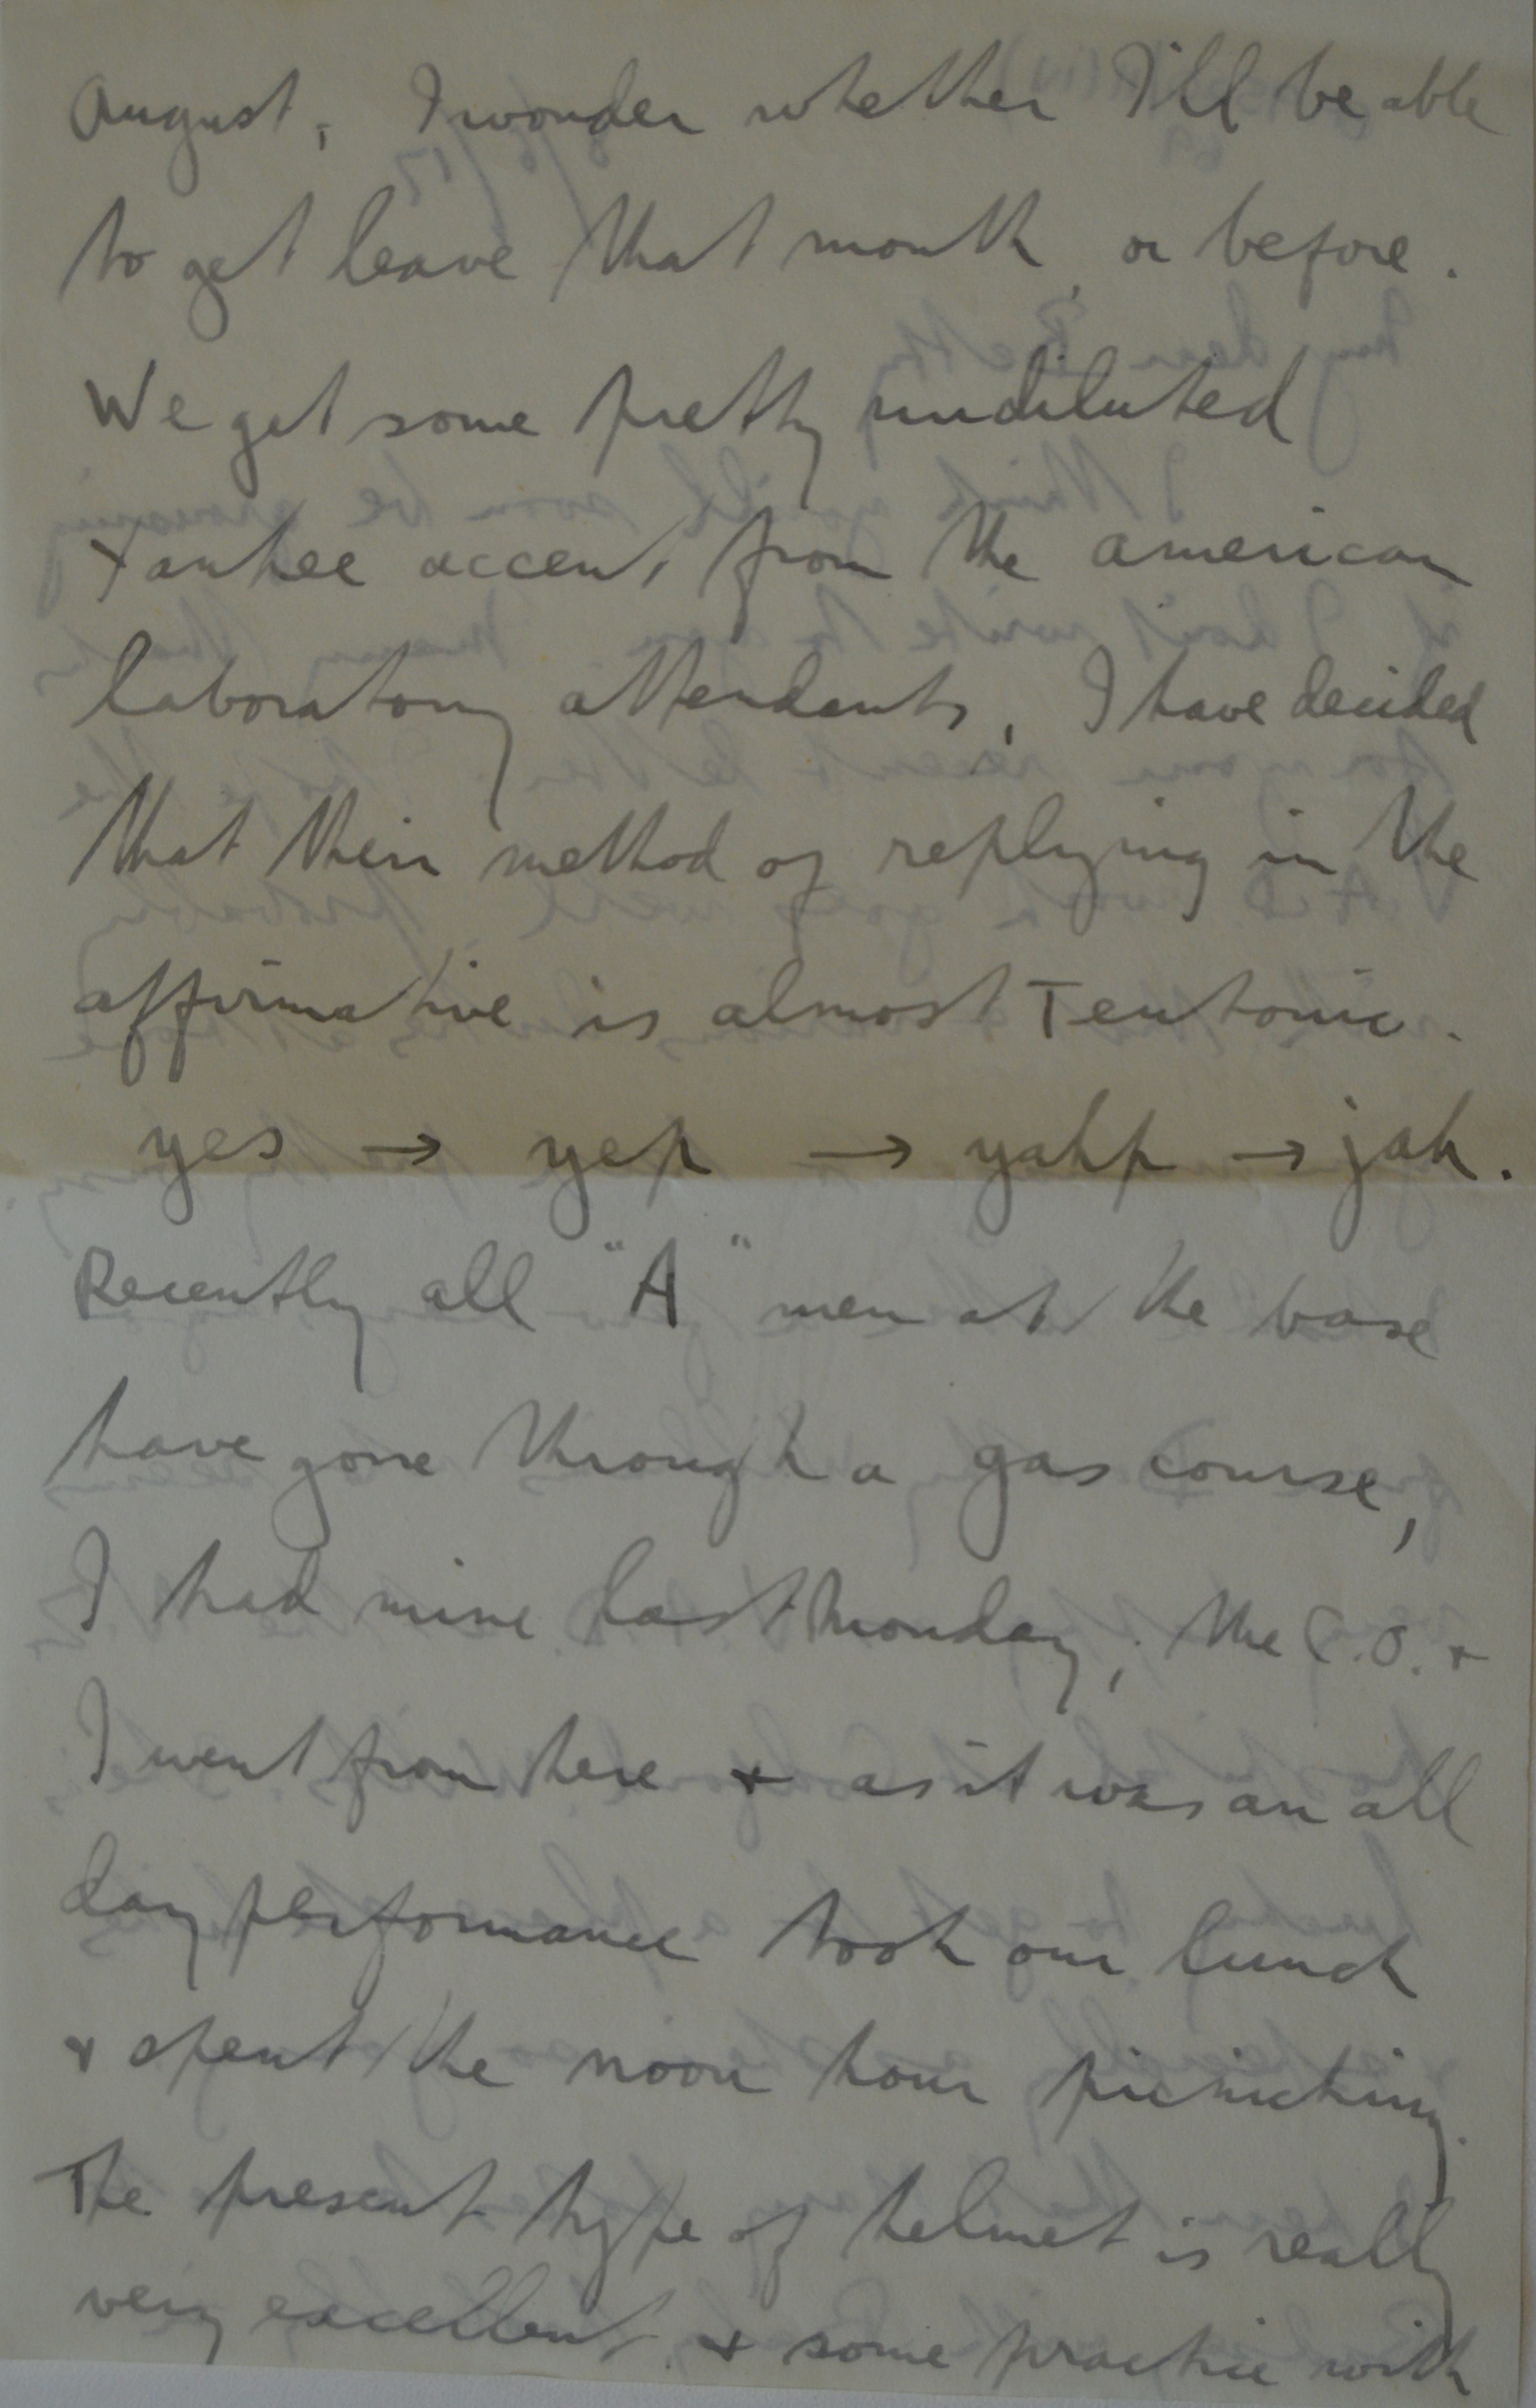 August, I wonder whether I'll be able
to get leave that month, or before.
We get some pretty undiluted
Yankee accent from the American
laboratory attendants, I have decided
that their method of replying in the
affirmative is almost Teutonic.
yes → yep → yahp → jah.
Recently all "A" men at the base
have gone through a gas course,
I had mine last Monday, the C.O. &
I went from here & as it was an all
day performance took our lunch
& spent the noon hour picnicking.
The present type of helmet is really
very excellent & some practice with